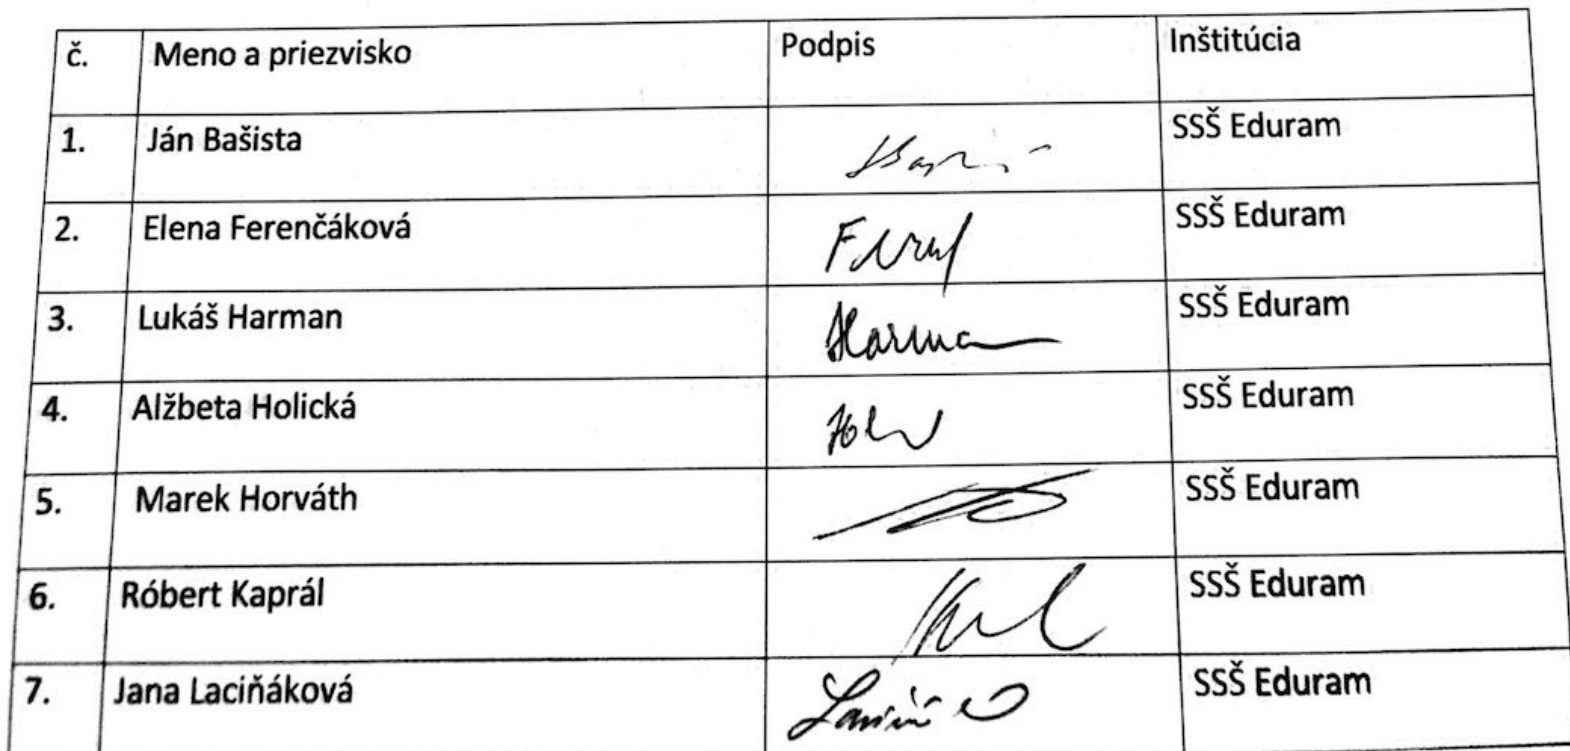 č. Meno a priezvisko Podpis Inštitúcia
1. Ján Bašista SSŠ Eduram
2. Elena Ferenčáková SSŠ Eduram
3. Lukáš Harman Harman SSŠ Eduram
4. Alžbeta Holická SSŠ Eduram
5. Marek Horváth SSŠ Eduram
6. Róbert Kaprál SSŠ Eduram
7. Jana Laciňáková SSŠ Eduram